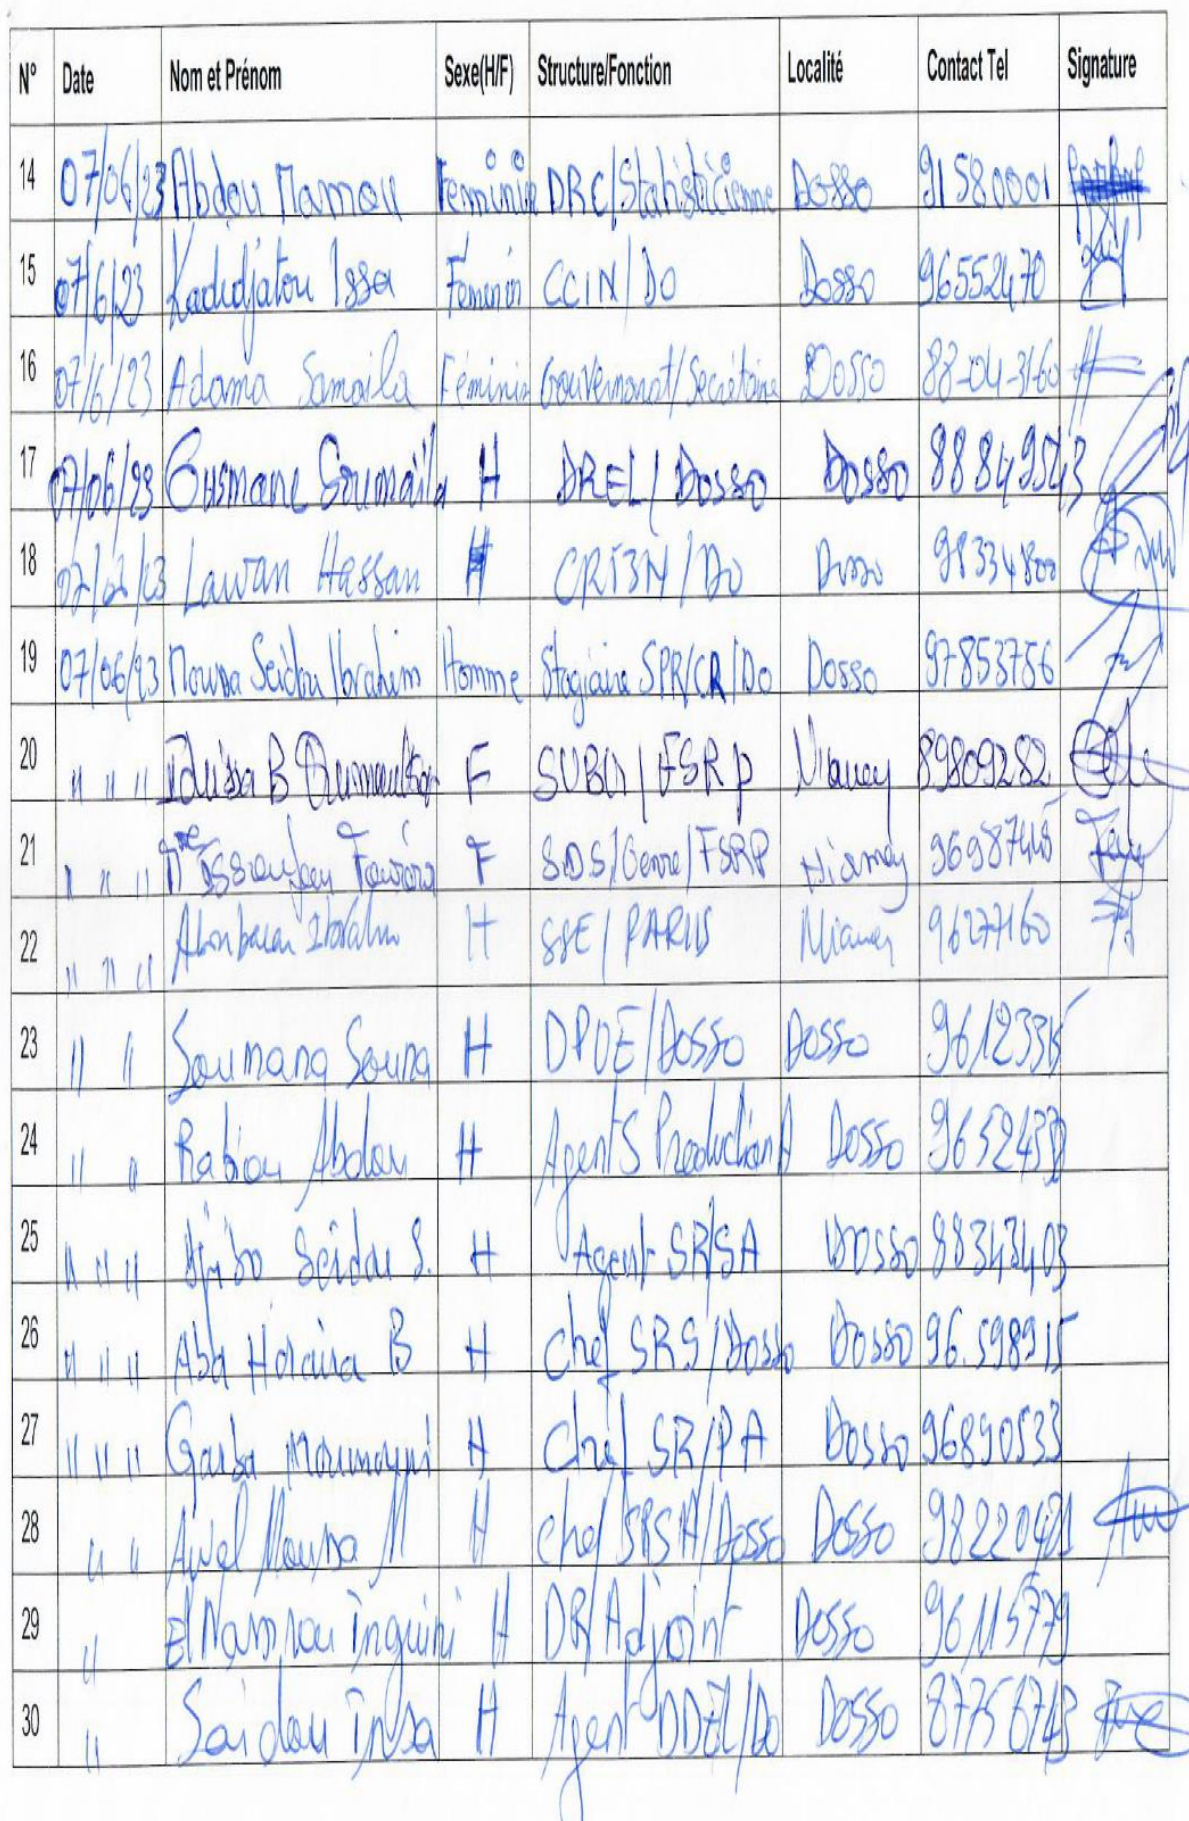 N° Date Nom et Prénom Sexe(H/F) Structure/Fonction Localité Contact Tel Signature
14 07/06/23 Abdou Mamou Feminin DRC/Statisticienne Dosso 91580001
15 07/6/23 Kadidjatou Issa Feminin CCIN/Do Dosso 96552470
16 07/6/23 Adama Samaila Féminin Gouvernorat/Secrétaire Dosso 88-04-31-60
17 07/06/23 Ousmane Soumaila H DREL/Dosso Dosso 88849543
18 Lawan Hassan H CRI3N/Do Dosso 98334800
19 07/06/23 Moussa Seidou Ibrahim Homme Stagiaire SPR/CR/Do Dosso 97853756
20 " " " B F /FSRP Niamey 89809282
21 " " " Mme F SDS/Genre/FSRP Niamey
22 " " " Ibrahim H SSE/ Niamey 96277160
23 " " Soumana H DPOE/Dosso Dosso
24 " " Rabiou Abdou H Agent S Production A Dosso
25 " " " Djibo Seidou S. H Agent SR/SA Dosso 88343403
26 " " " B H Chef SRS/Dosso Dosso 96.598915
27 " " " Garba Moumouni H Chef SR/PA Dosso 96890533
28 " " Moussa M H Chef SRSA/Dosso Dosso
29 " H DR/Adjoint Dosso 96115779
30 " Saidou Inssa H Agent DDEL/Do Dosso 87756743